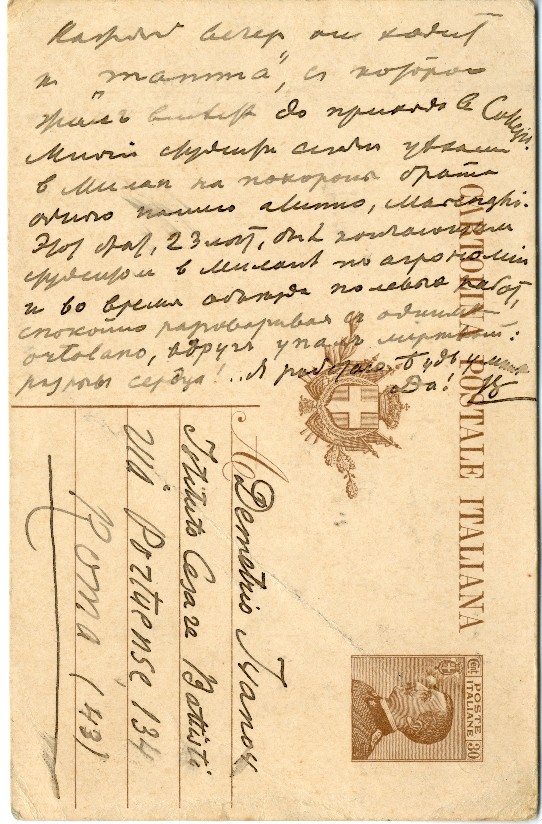 Каждый вечер он ходит
к "mamma", с которой
жилъ вместе до приезда в Collegio.
Многие студенты сегодня уехали
в Милан на похороны брата
одного нашего alunno, Marenghi.
Этот брат, 23 лет, был
студентом в Милане по агрономии
и во время обхода полевых работ,
спокойно разговаривая с одним
ortolano, вдругъ упалъ мертвый:
разрыв сердца!.. Я работаю. Будь
Да! В
CARTOLINA POSTALE ITALIANA
A Demetrio Ivanov
Istituto Cesare Battisti
Via Portuense 134
Roma (43)
POSTE ITALIANE
Cent. 30